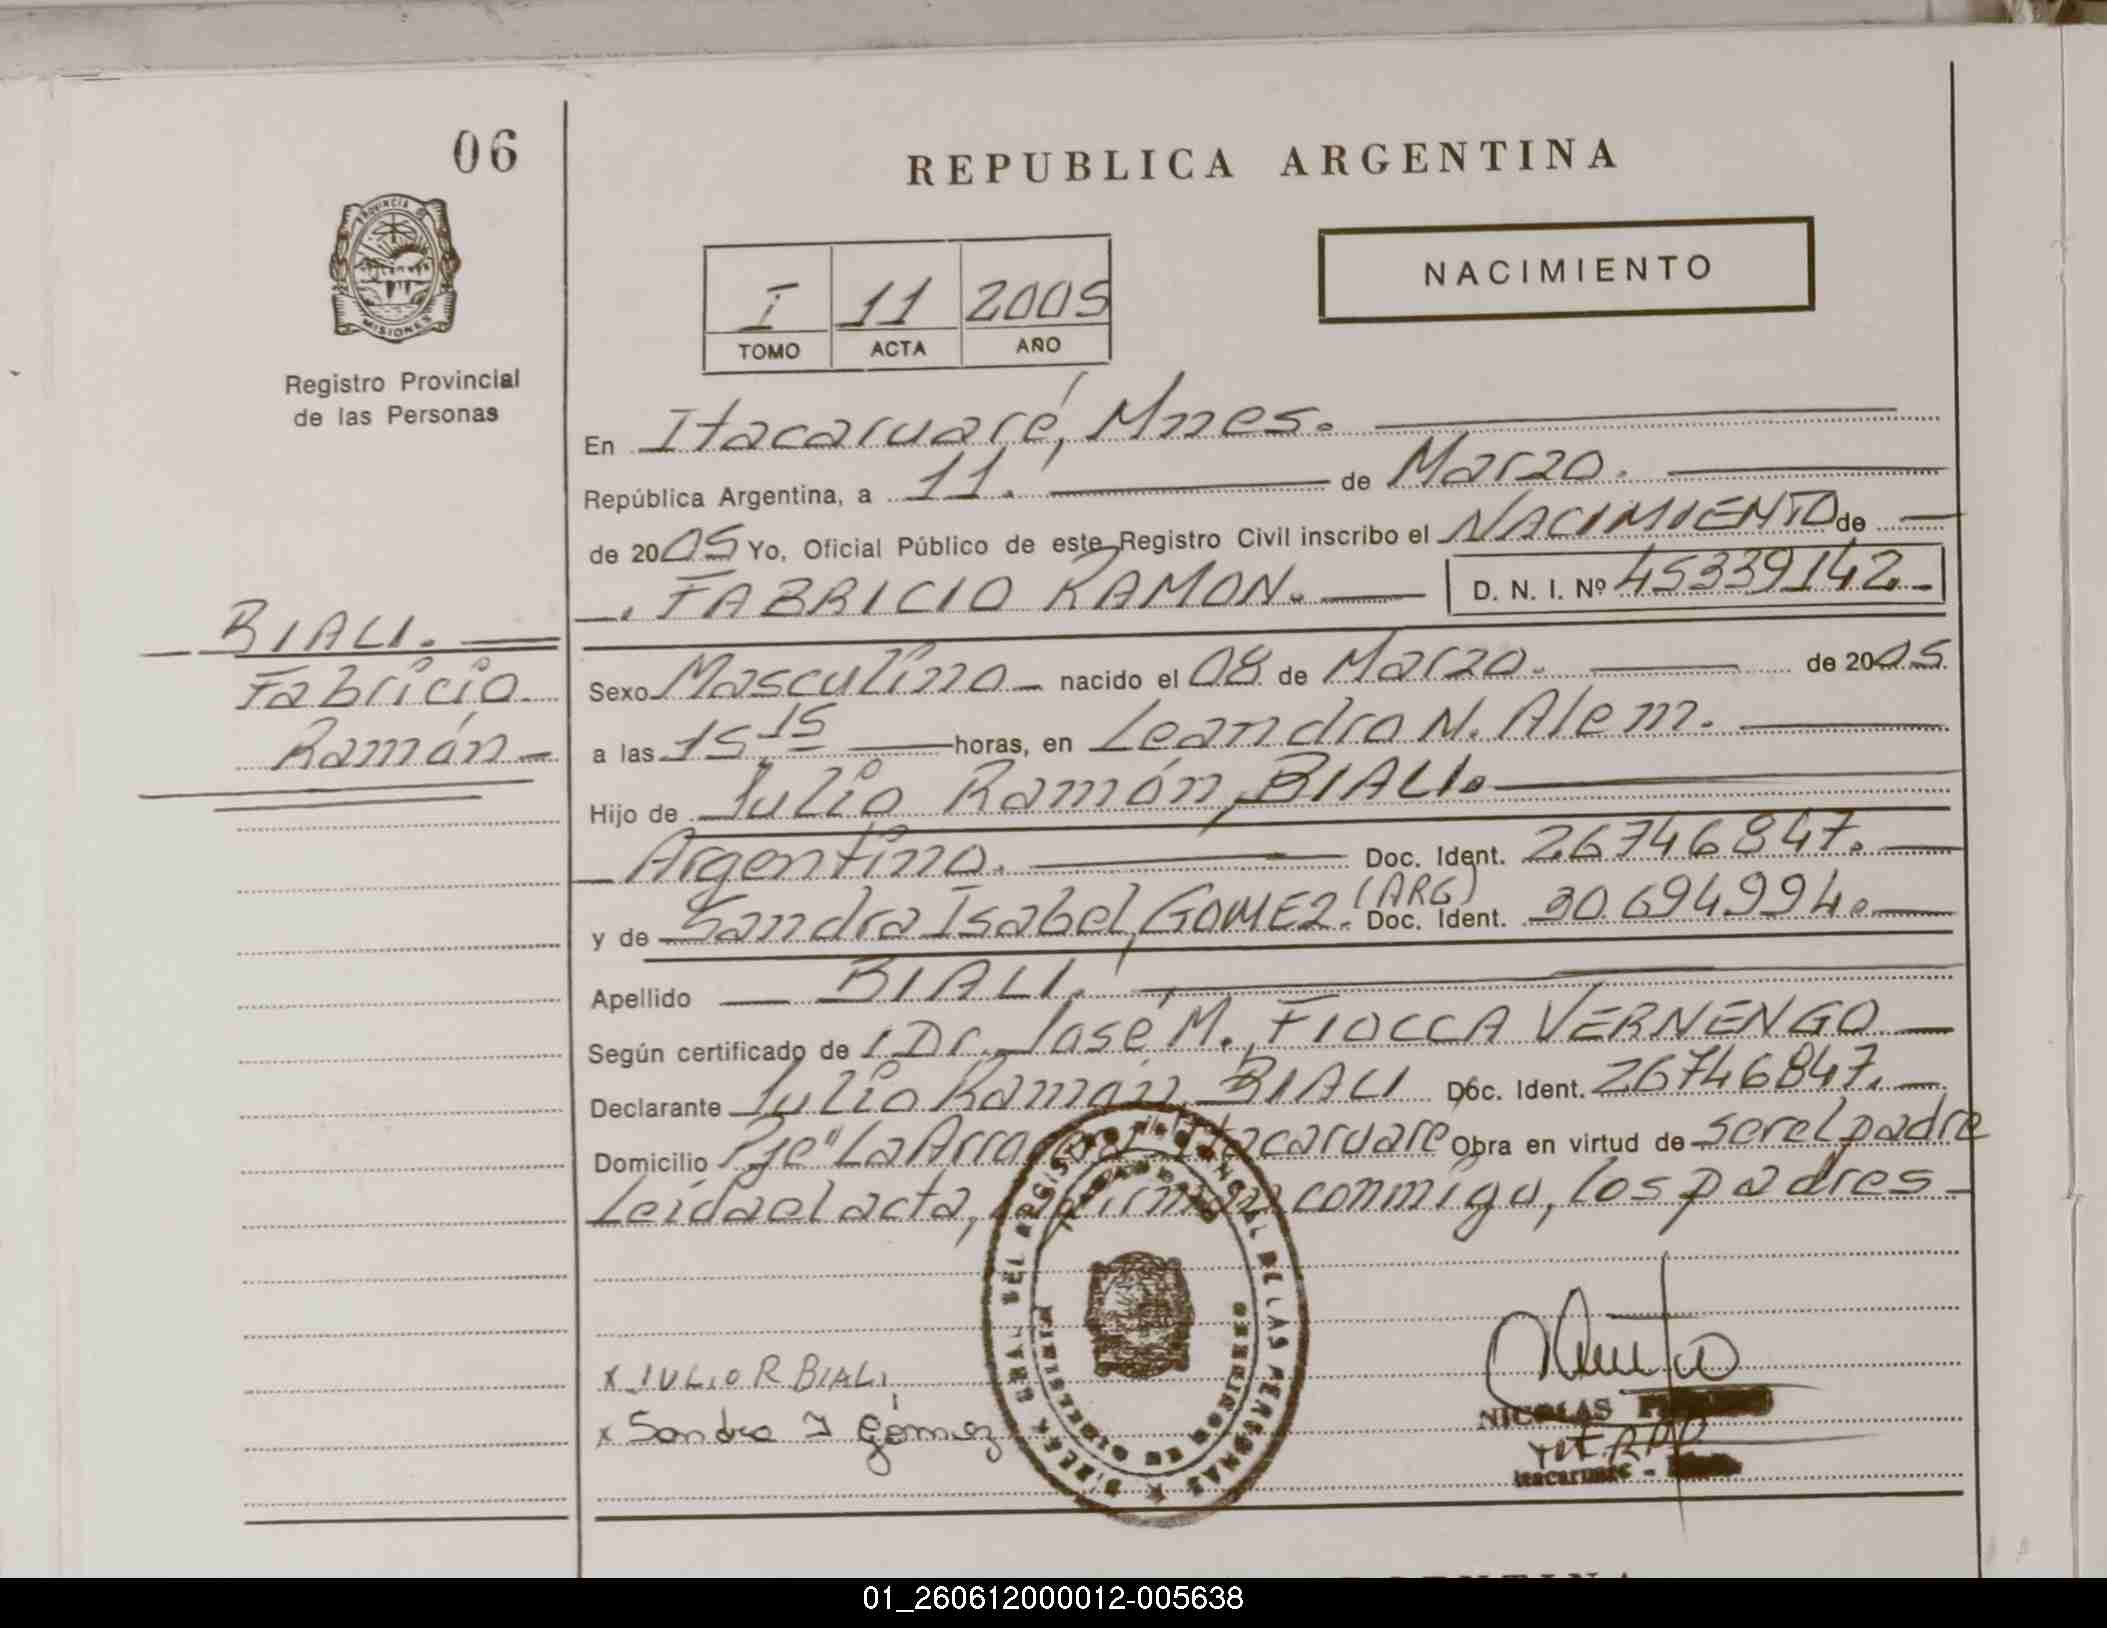 06
REPUBLICA ARGENTINA
NACIMIENTO
PROVINCIA DE
MISIONES
I 11 2005
TOMO ACTA AÑO
Registro Provincial
de las Personas
En Itacaruaré, Mnes.
República Argentina, a 11. de Marzo.
de 2005 Yo, Oficial Público de este Registro Civil inscribo el NACIMIENTO de
FABRICIO RAMON. D. N. I. Nº 45339142
BIALI.
Fabricio
Ramón
Sexo Masculino nacido el 08 de Marzo. de 2005.
a las 15,15 horas, en Leandro N. Alem.
Hijo de Julio Ramón, BIALI.
Argentino. Doc. Ident. 26746847.
y de Sandra Isabel, GOMEZ. (ARG) Doc. Ident. 30.694994.
Apellido BIALI.
Según certificado de Dr. José M. FIOCCA VERNENGO
Declarante Julio Ramón, BIALI Doc. Ident. 26746847.
Domicilio Pje "La Itacaruare Obra en virtud de ser el padre
Leida el acta, conmigo, los padres
x JULIO R BIALI
x Sandra I Gómez
NICOLAS
Itacaruare -
01_260612000012-005638